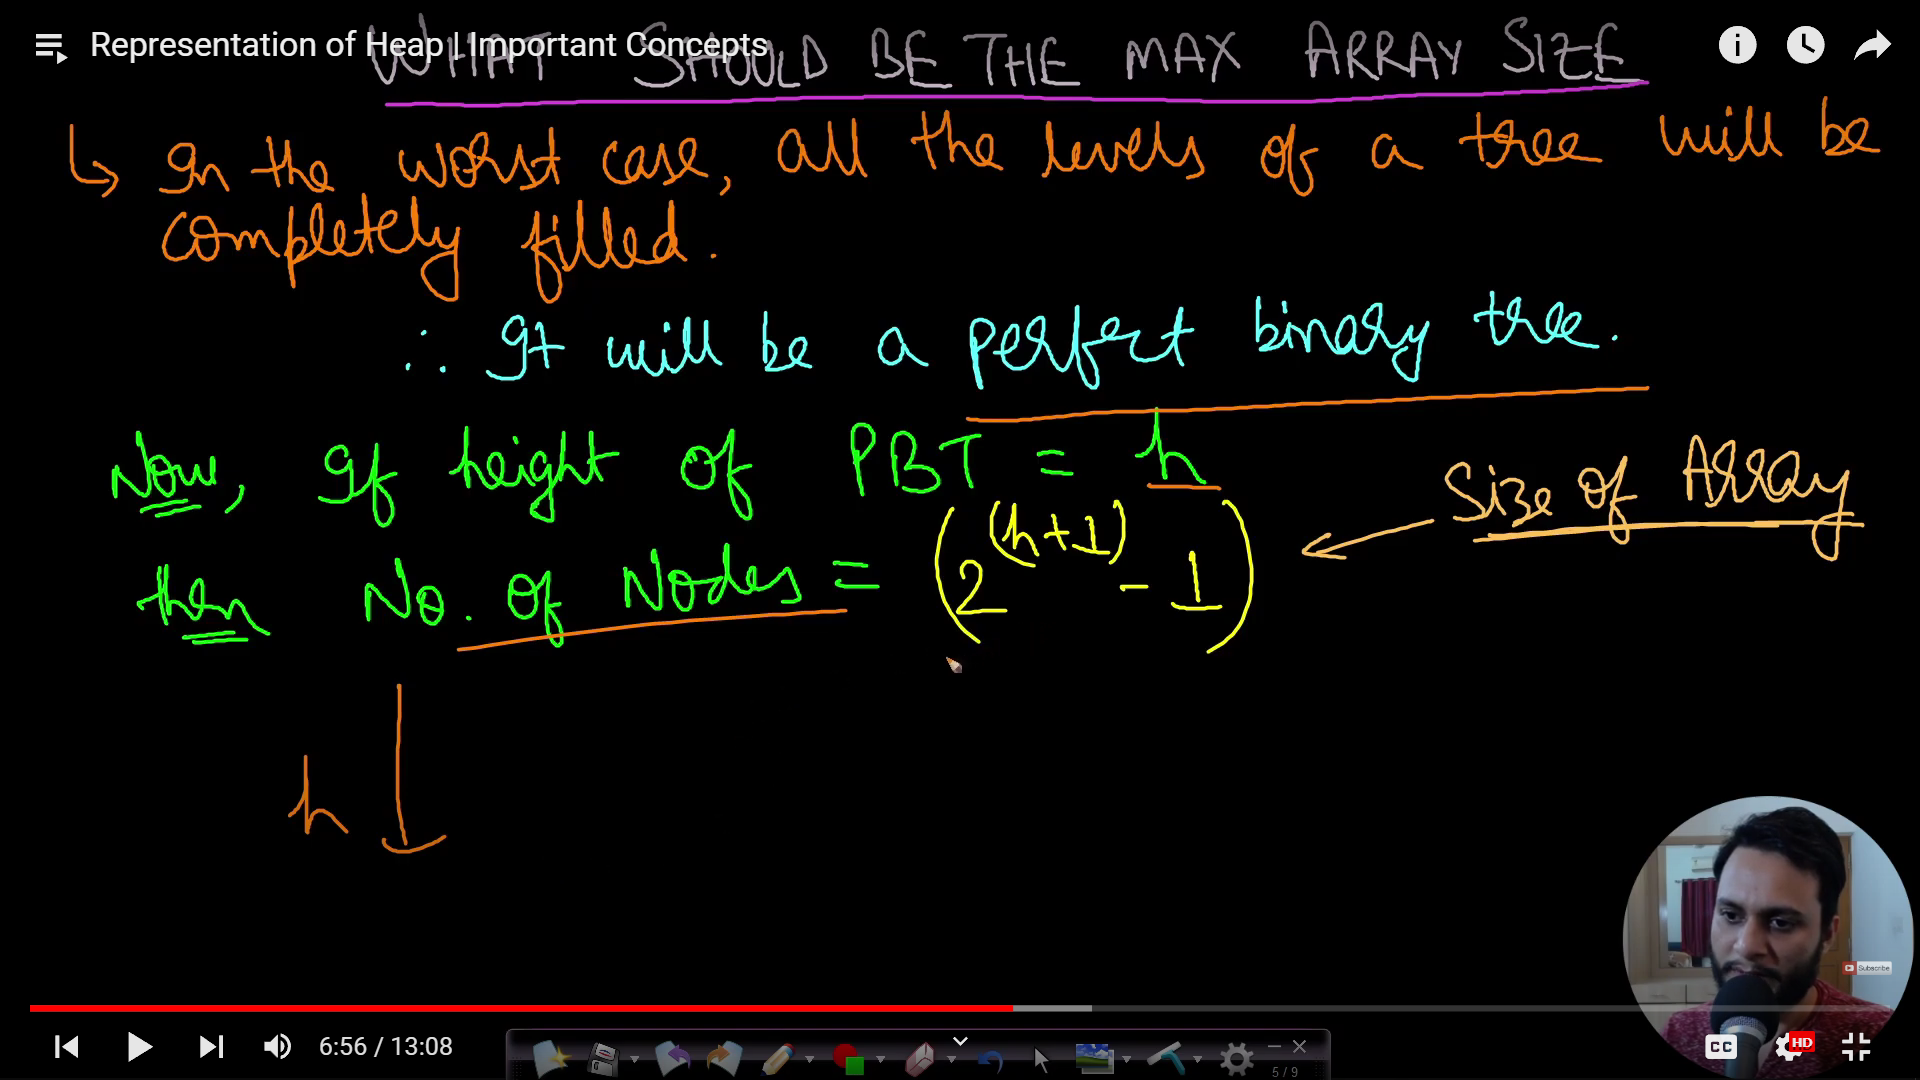 Representation of Heap | Important Concepts
WHAT SHOULD BE THE MAX ARRAY SIZE
↳ In the worst case, all the levels of a tree will be
completely filled.
∴ It will be a perfect binary tree.
Now, If height of PBT = h
Size of Array
then No. of Nodes = (2^(h+1) - 1)
h
Subscribe
6:56 / 13:08
CC
HD
5 / 9